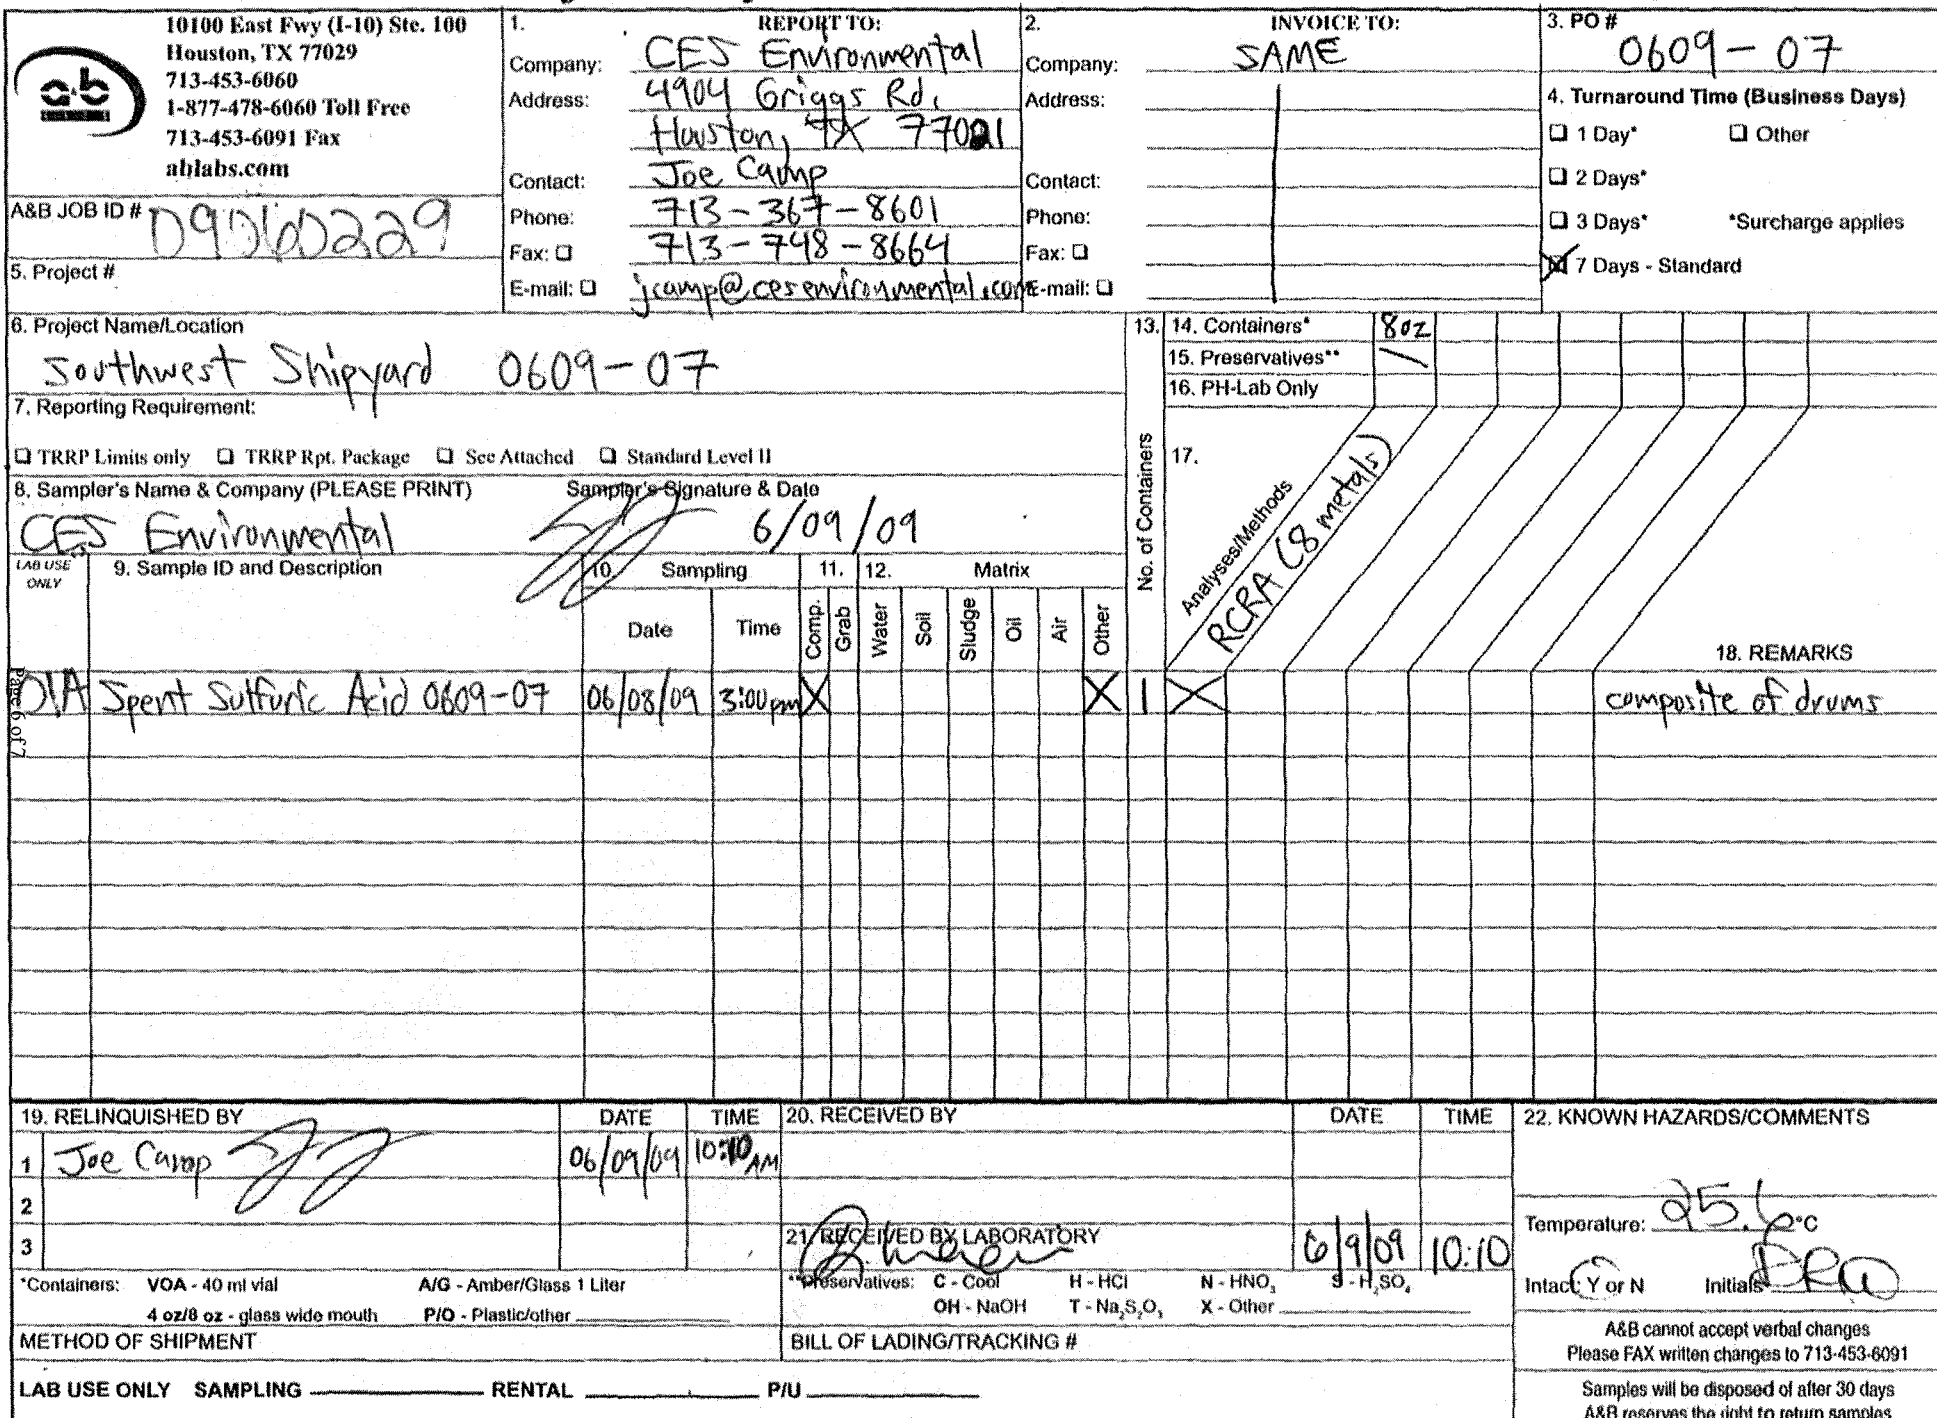 10100 East Fwy (I-10) Ste. 100
Houston, TX 77029
713-453-6060
1-877-478-6060 Toll Free
713-453-6091 Fax
ablabs.com
a&b
A&B JOB ID # 09060229
5. Project #
1. REPORT TO:
Company: CES Environmental
Address: 4904 Griggs Rd.
Houston, TX 77021
Contact: Joe Camp
Phone: 713-367-8601
Fax: ☐ 713-748-8664
E-mail: ☐ jcamp@cesenvironmental.com
2. INVOICE TO:
Company: SAME
Address:
Contact:
Phone:
Fax: ☐
E-mail: ☐
3. PO #
0609-07
4. Turnaround Time (Business Days)
☐ 1 Day* ☐ Other
☐ 2 Days*
☐ 3 Days* *Surcharge applies
☒ 7 Days - Standard
6. Project Name/Location
Southwest Shipyard 0609-07
7. Reporting Requirement:
☐ TRRP Limits only ☐ TRRP Rpt. Package ☐ See Attached ☐ Standard Level II
8. Sampler's Name & Company (PLEASE PRINT) Sampler's Signature & Date
CES Environmental 6/09/09
13. No. of Containers
14. Containers* 8oz
15. Preservatives** \
16. PH-Lab Only
17. Analyses/Methods
RCRA (8 metals)
LAB USE ONLY
9. Sample ID and Description
10. Sampling
Date Time
11. Comp. Grab
12. Matrix
Water Soil Sludge Oil Air Other
18. REMARKS
01A Spent Sulfuric Acid 0609-07 06/08/09 3:00pm X X 1 X composite of drums
Page 6 of 7
19. RELINQUISHED BY DATE TIME
1 Joe Camp 06/09/09 10:10 AM
2
3
20. RECEIVED BY DATE TIME
21. RECEIVED BY LABORATORY 6/9/09 10:10
22. KNOWN HAZARDS/COMMENTS
Temperature: 25.6 °C
Intact: Y or N Initials
*Containers: VOA - 40 ml vial A/G - Amber/Glass 1 Liter
4 oz/8 oz - glass wide mouth P/O - Plastic/other
**Preservatives: C - Cool H - HCl N - HNO₃ S - H₂SO₄
OH - NaOH T - Na₂S₂O₃ X - Other
METHOD OF SHIPMENT
BILL OF LADING/TRACKING #
A&B cannot accept verbal changes
Please FAX written changes to 713-453-6091
LAB USE ONLY SAMPLING RENTAL P/U
Samples will be disposed of after 30 days
A&B reserves the right to return samples